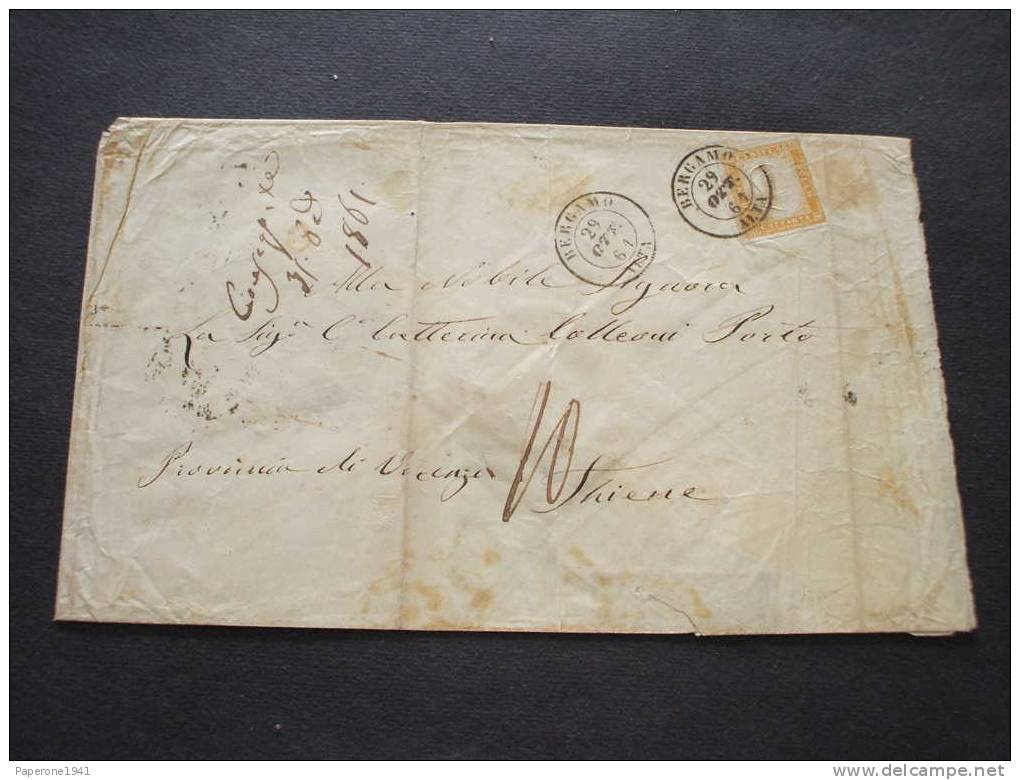 1861
BERGAMO
29
OTT.
61
ALTA
BERGAMO
29
OTT.
61
ALTA
Alla Nobile Signora
La Sigª Cª Catterina Colleoni Porto
10
Provincia di Vicenza
Thiene
Paperone1941
www.delcampe.net